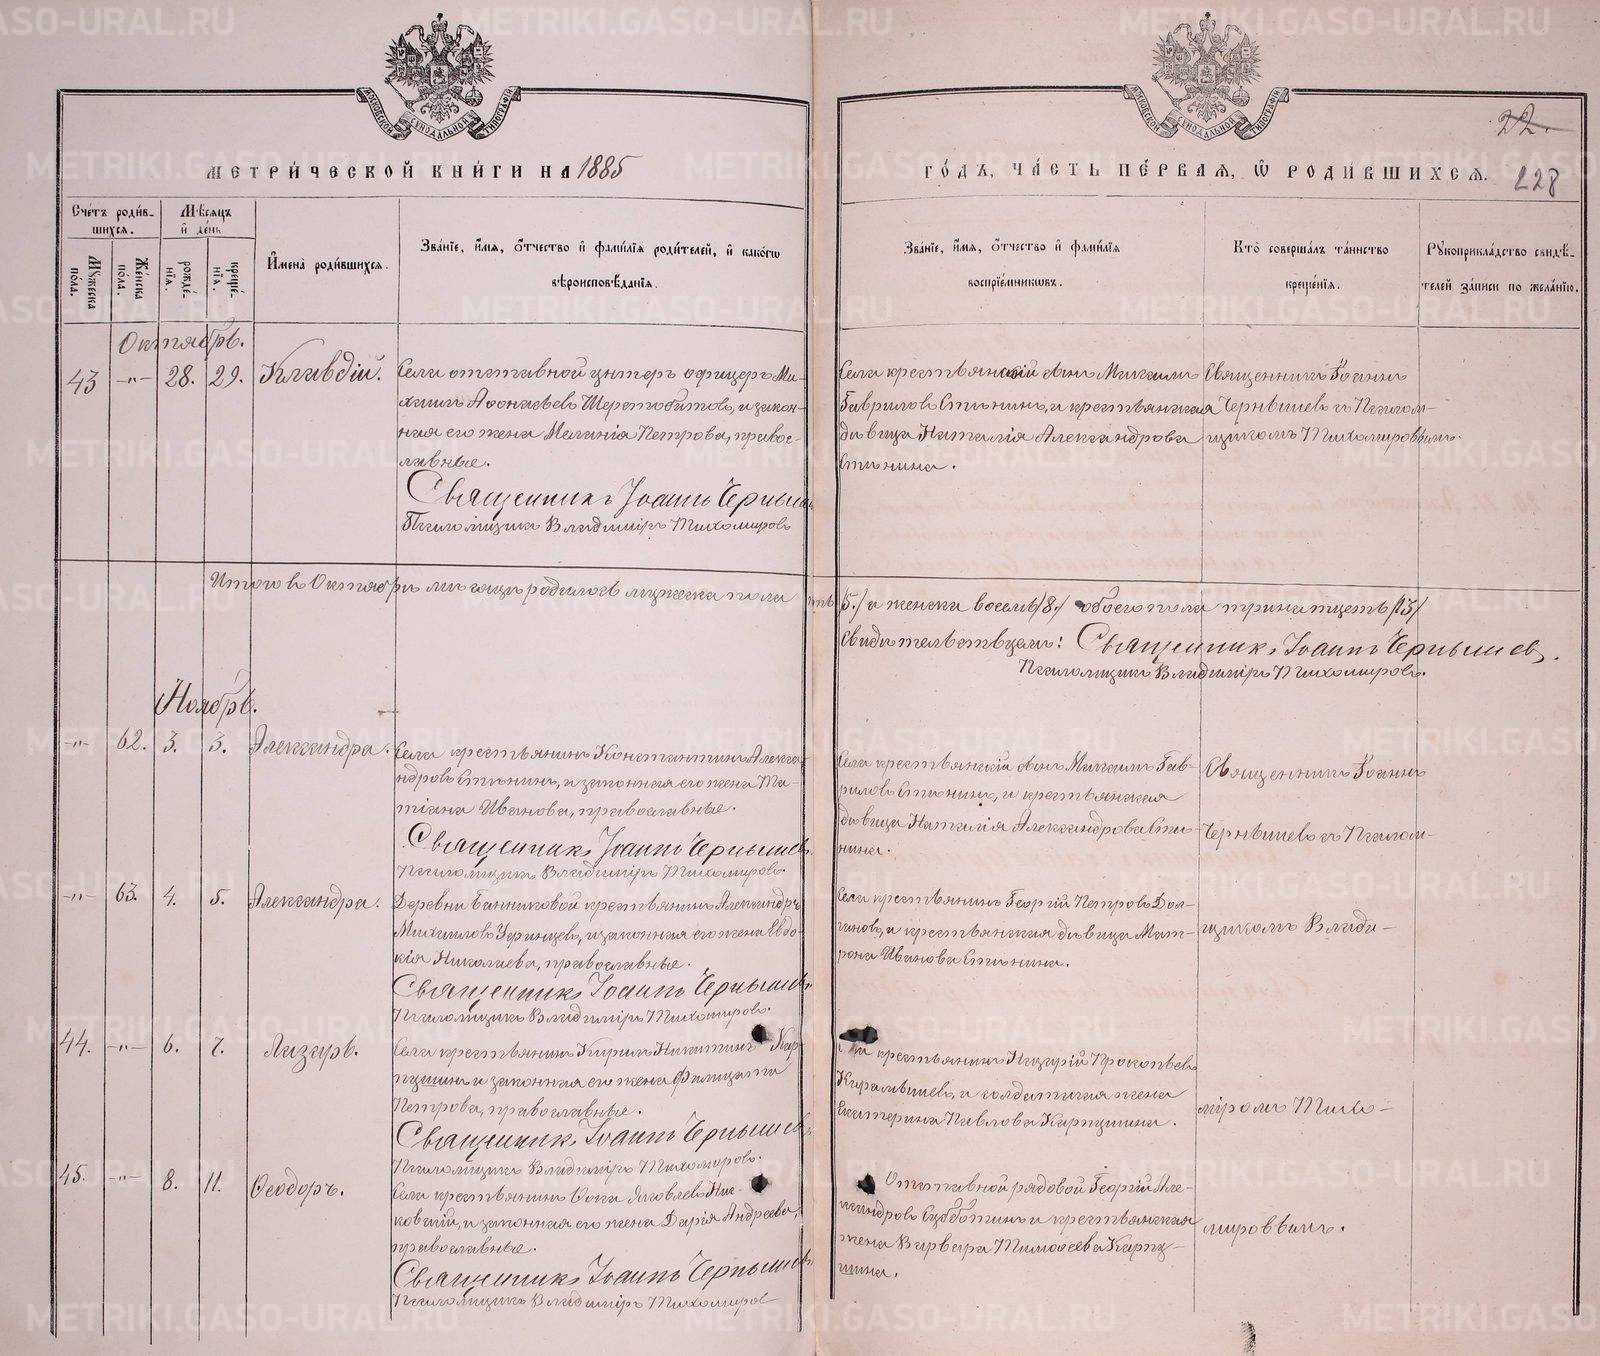 МЕТРИ́ЧЕСКОЙ КНИ́ГИ НА 1885
ГО́ДЪ, ЧА́СТЬ ПЕ́РВАЯ, Ѿ РОДИ́ВШИХСЯ.
22.
228
МОСКОВСКОЙ СИНОДАЛЬНОЙ ТИПОГРАФІИ
МОСКОВСКОЙ СИНОДАЛЬНОЙ ТИПОГРАФІИ
Сче́тъ роди́в-
шихся.
Му́жеска
по́ла.
Же́нска
по́ла.
Мѣ́сяцъ
и҆ де́нь
рожде́-
нїя.
креще́-
нїя.
И҆мена̀ роди́вшихся.
Зва́нїе, и҆́мя, ѻ҆́тчество и҆ фами́лїя роди́телей, и҆ како́гѡ
вѣроисповѣ́данїя.
Зва́нїе, и҆́мя, ѻ҆́тчество и҆ фами́лїя
воспрїе́мникѡвъ.
Кто̀ соверша́лъ та́инство
креще́нїя.
Рꙋкоприкла́дство свидѣ́-
телей за́писи по жела́нїю.
Октябрь.
43 -„- 28. 29. Клавдій.
Села отставной унтеръ офицеръ Ми-
хаилъ Аѳонасьевъ Шерстобитовъ, и закон-
ная его жена Меланія Петрова, православ-
лавные.
Священникъ Іоаннъ Чернышев
Псаломщикъ Владиміръ Тихомировъ
Села крестьянскій сынъ Михаилъ
Гавриловъ Стынинъ, и крестьянская
дѣвица Наталія Александрова
Стынина.
Священникъ Іоаннъ
Чернышевъ съ Псалом-
щикомъ Тихомировымъ.
Итого въ Октябрѣ мѣсяцѣ родилось мужеска пола
пять /5./ а женска восемь /8./ обоего пола тринатцать /13/
Свидѣтельствуемъ: Священникъ Іоаннъ Чернышевъ.
Псаломщикъ Владиміръ Тихомировъ.
Ноябрь.
-„- 62. 3. 3. Александра.
Села крестьянинъ Константинъ Алекса-
ндровъ Стынинъ, и законная его жена Та-
тіана Иванова, православные.
Священникъ Іоаннъ Чернышев
Псаломщикъ Владиміръ Тихомировъ.
Села крестьянскій сынъ Михаилъ Гав-
риловъ Стынинъ, и крестьянская
дѣвица Наталія Александрова Сты-
нина.
Священникъ Іоаннъ
Чернышевъ съ Псалом-
-„- 63. 4. 5. Александра.
Деревни Банниковой крестьянинъ Александръ
Михаиловъ Уфинцевъ, и законная его жена Евдо-
кія Николаева, православные.
Священникъ Іоаннъ Чернышев
Псаломщикъ Владиміръ Тихомировъ.
Села крестьянинъ Георгій Петровъ Дол-
гановъ, и крестьянская дѣвица Мат-
рона Иванова Стынина.
щикомъ Влади-
44. -„- 6. 7. Лазарь.
Села крестьянинъ Кирилъ Никитинъ Кар-
пушинъ и законная его жена Фелицата
Петрова, православные.
Священникъ Іоаннъ Чернышев
Псаломщикъ Владиміръ Тихомировъ.
крестьянинъ Назарій Прокопьевъ
и солдатская жена
Екатерина Павлова Карпушина.
міромъ Тихо-
45. -„- 8. 11. Ѳеодоръ.
Села крестьянинъ Ѳока Яковлевъ
и законная его жена Дарія Андреева,
православные.
Священникъ Іоаннъ Чернышев
Псаломщикъ Владиміръ Тихомиров
Отставной рядовой Георгій Але-
ксандровъ Субботинъ и крестьянская
жена Варвара Тимоѳеева Карпу-
шина.
мировымъ.
METRIKI.GASO-URAL.RU